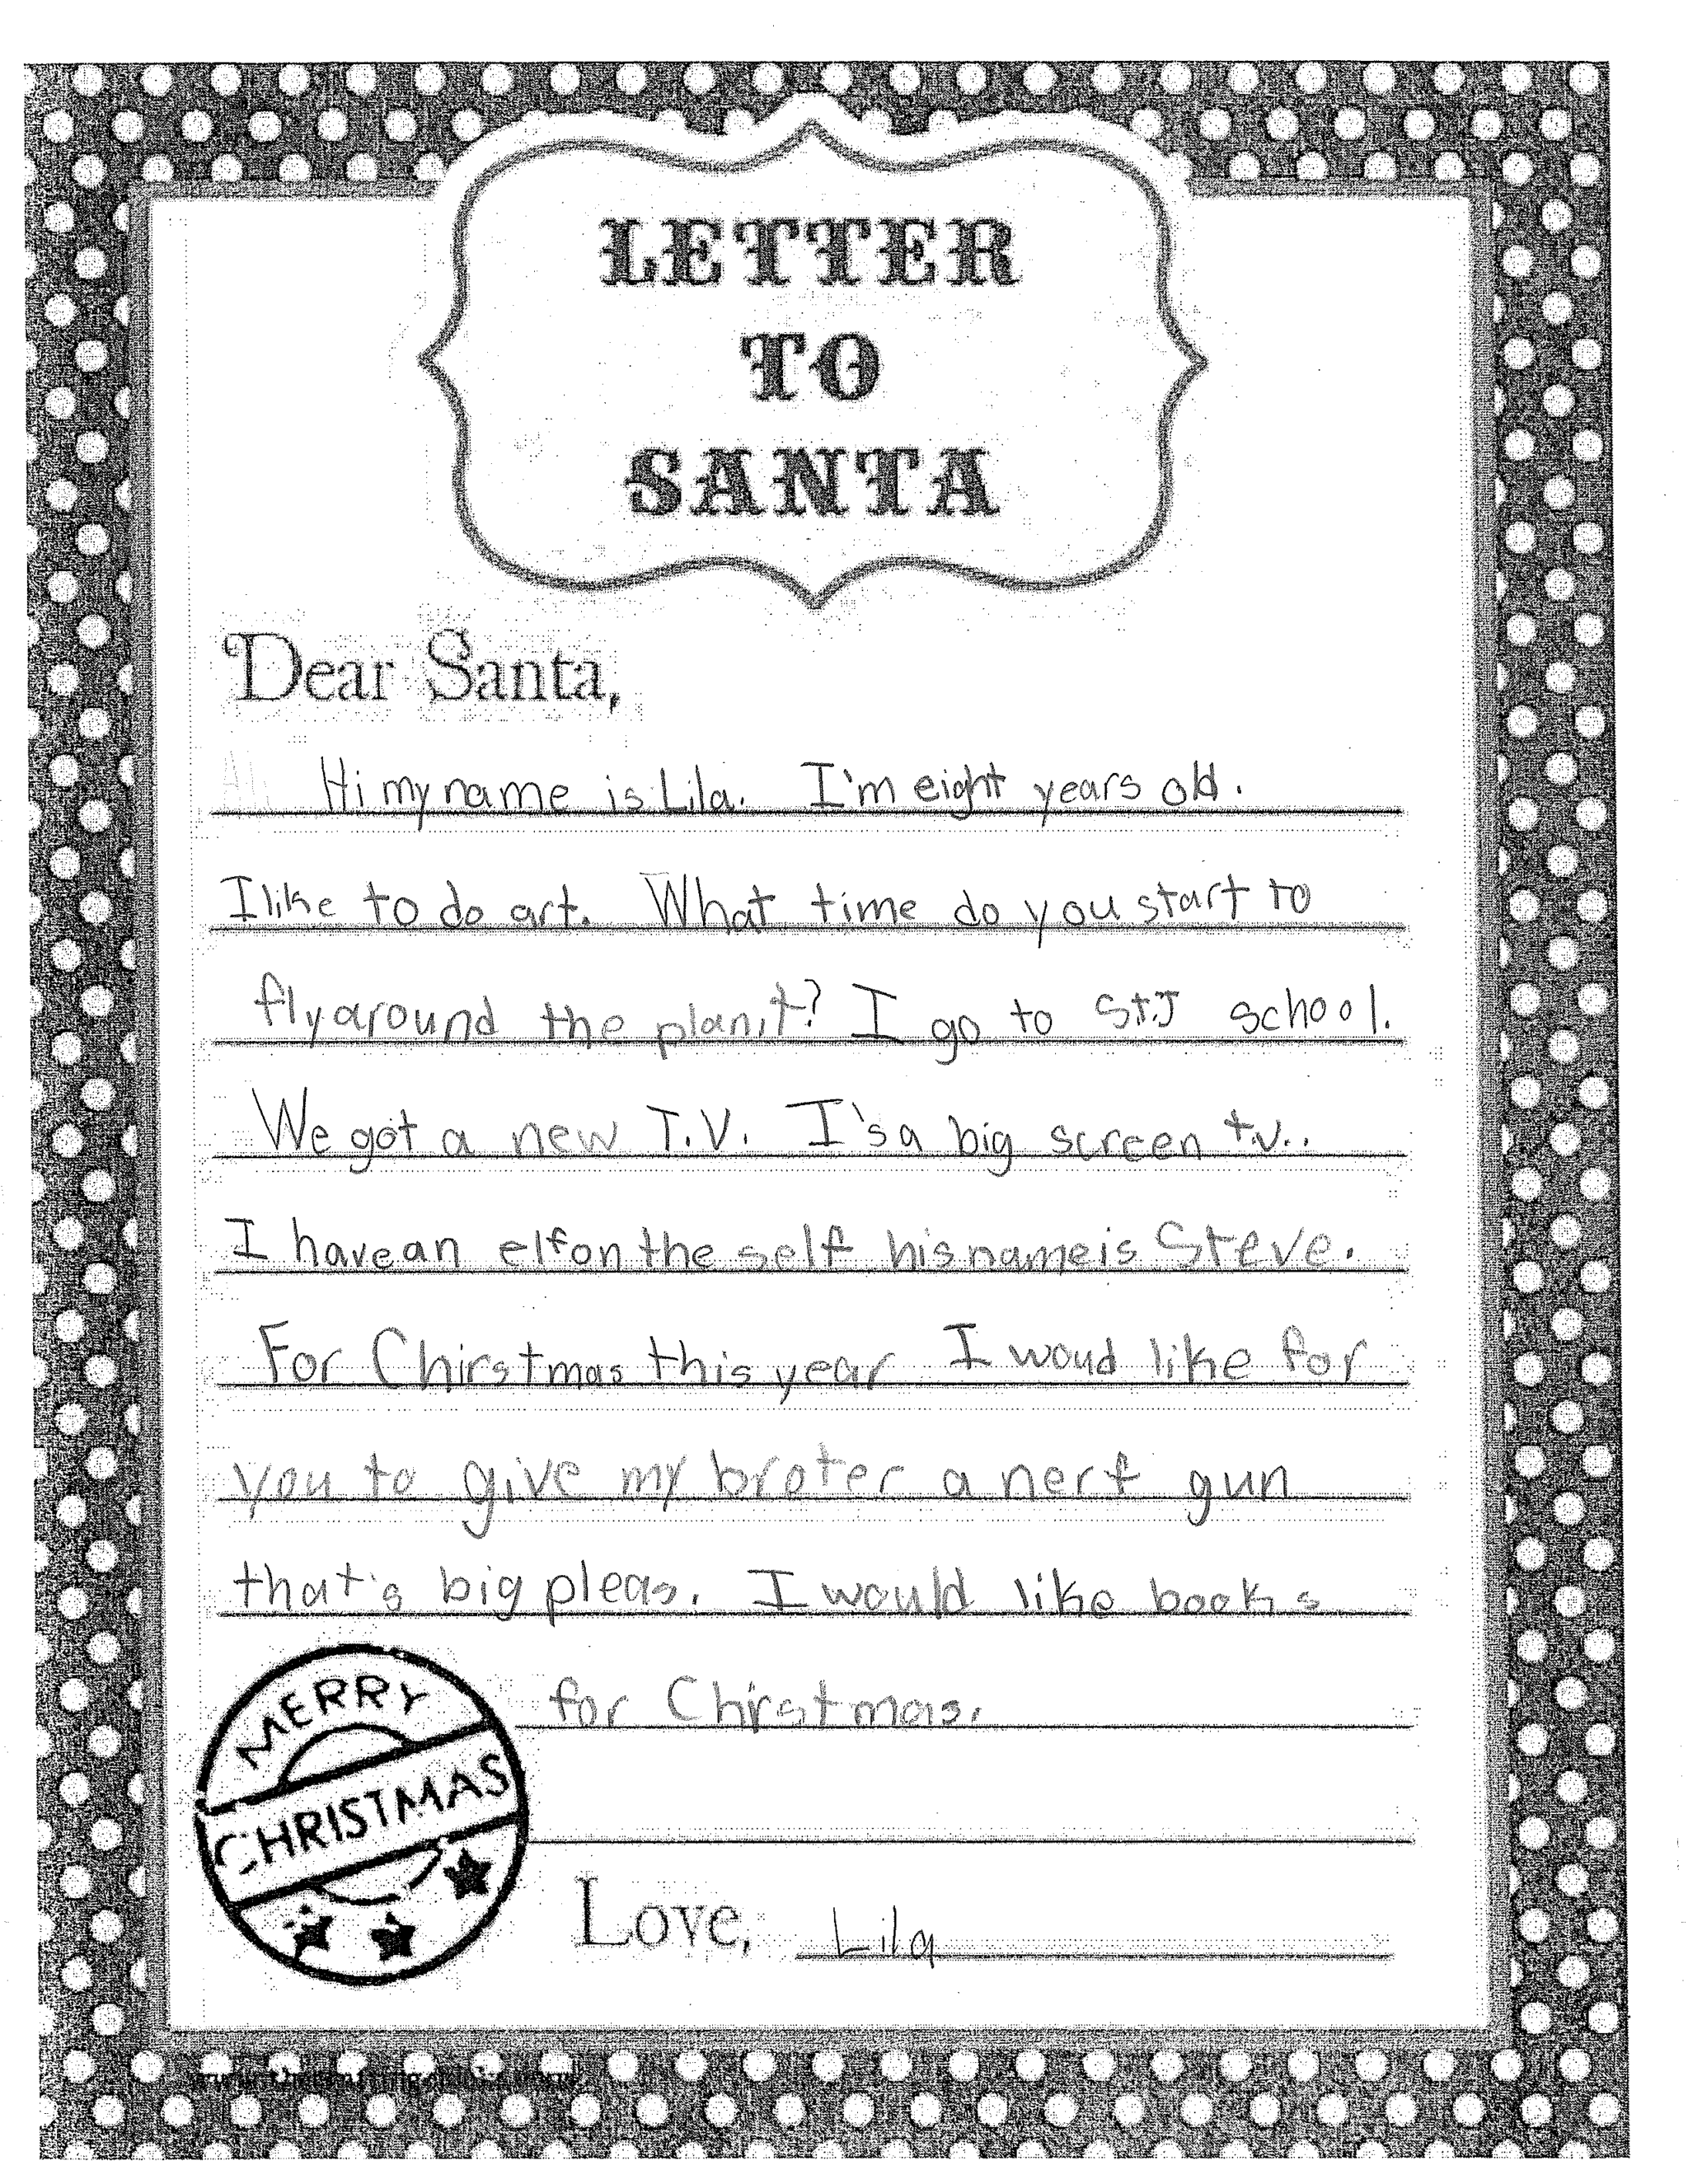 LETTER
TO
SANTA
Dear Santa,
Hi my name is Lila. I'm eight years old.
I like to do art. What time do you start to
fly around the planit? I go to St.J school.
We got a new T.V. I'sa big screen t.v..
I have an elf on the self his name is Steve.
For Chirstmas this year I woud like for
you to give my broter a nerf gun
that's big pleas. I would like books
for Chirstmas.
MERRY
CHRISTMAS
Love, Lila